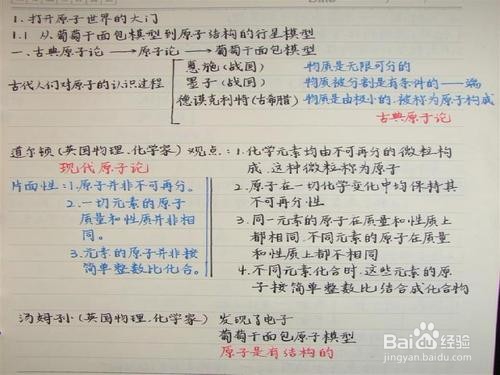 1. 打开原子世界的大门
1.1 从葡萄干面包模型到原子结构的行星模型
一、古典原子论 → 原子论 → 葡萄干面包模型
古代人们对原子的认识过程
惠施(战国) 物质是无限可分的
墨子(战国) 物质被分割是有条件的——端
德谟克利特(古希腊) 物质是由极小的.被称为原子构成
古典原子论
道尔顿(英国物理.化学家)观点:1.化学元素均由不可再分的微粒构
成.这种微粒称为原子
现代原子论
片面性:1.原子并非不可再分。
2.一切元素的原子
质量和性质并非相
同。
3.元素的原子并非按
简单整数比化合。
2.原子在一切化学变化中均保持其
不可再分性
3.同一元素的原子在质量和性质上
都相同.不同元素的原子在质量
和性质上都不相同
4.不同元素化合时.这些元素的原
子按简单整数比结合成化合物
汤姆孙(英国物理.化学家) 发现了电子
葡萄干面包原子模型
原子是有结构的
Baidu经验
jingyan.baidu.com